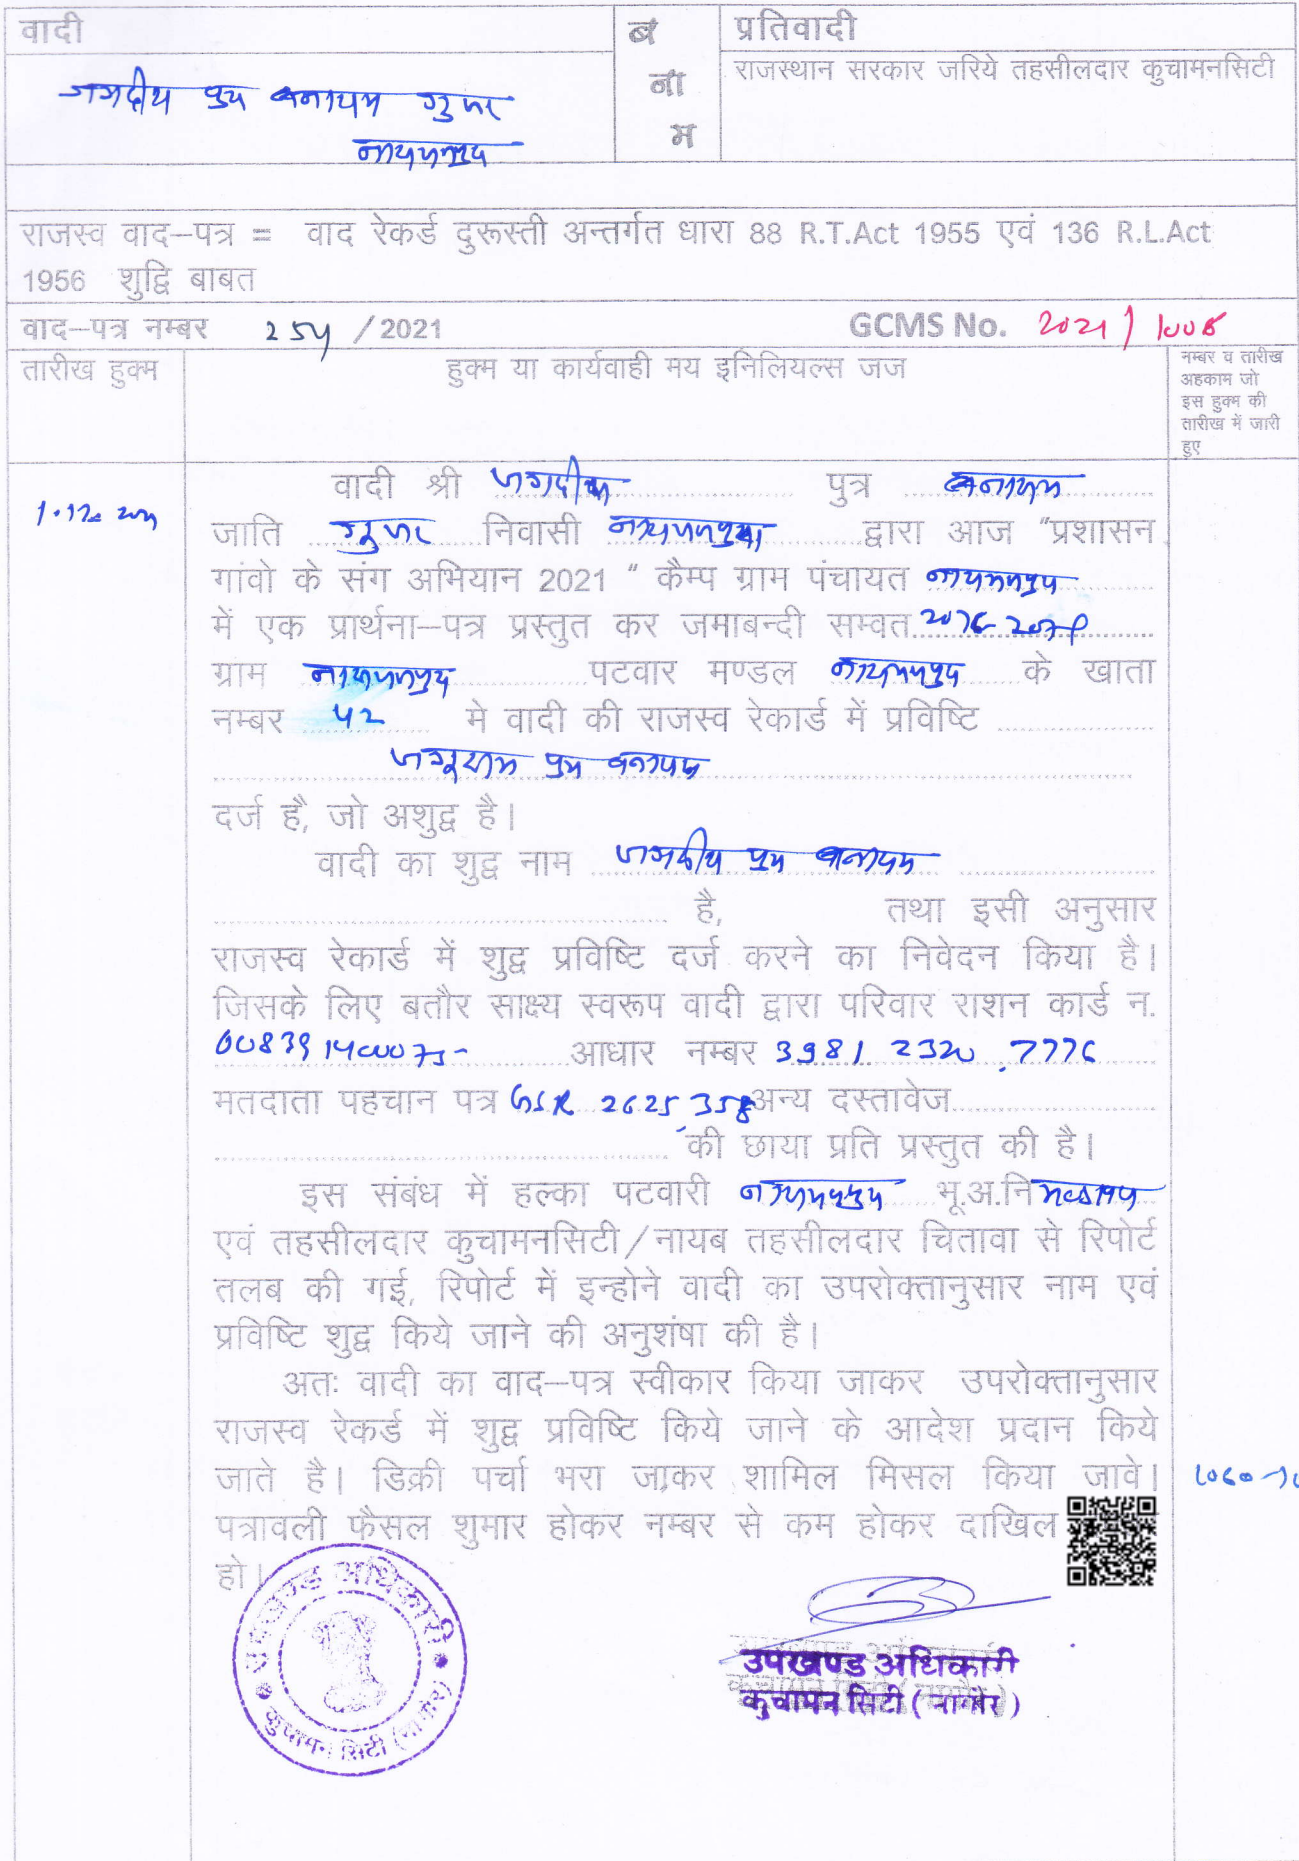 वादी
ब
ना
म
प्रतिवादी
जगदीश पुत्र बनाराम गुर्जर
नारायणपुरा
राजस्थान सरकार जरिये तहसीलदार कुचामनसिटी
राजस्व वाद–पत्र = वाद रेकर्ड दुरूस्ती अन्तर्गत धारा 88 R.T.Act 1955 एवं 136 R.L.Act
1956 शुद्वि बाबत
वाद–पत्र नम्बर /2021 GCMS No. 2021/
तारीख हुक्म
हुक्म या कार्यवाही मय इनिलियल्स जज
नम्बर व तारीख
अहकाम जो
इस हुक्म की
तारीख में जारी
हुए
वादी श्री जगदीश पुत्र बनाराम
जाति गुर्जर निवासी नारायणपुरा द्वारा आज "प्रशासन
गांवो के संग अभियान 2021 " कैम्प ग्राम पंचायत नारायणपुरा
में एक प्रार्थना–पत्र प्रस्तुत कर जमाबन्दी सम्वत
ग्राम नारायणपुरा पटवार मण्डल नारायणपुरा के खाता
नम्बर 42 मे वादी की राजस्व रेकार्ड में प्रविष्टि
जगूराम पुत्र बनाराम
दर्ज है, जो अशुद्व है।
वादी का शुद्व नाम जगदीश पुत्र बनाराम
है, तथा इसी अनुसार
राजस्व रेकार्ड में शुद्व प्रविष्टि दर्ज करने का निवेदन किया है।
जिसके लिए बतौर साक्ष्य स्वरूप वादी द्वारा परिवार राशन कार्ड न.
आधार नम्बर 3981 2320 7776
मतदाता पहचान पत्र अन्य दस्तावेज
की छाया प्रति प्रस्तुत की है।
इस संबंध में हल्का पटवारी नारायणपुरा भू.अ.नि
एवं तहसीलदार कुचामनसिटी/नायब तहसीलदार चितावा से रिपोर्ट
तलब की गई, रिपोर्ट में इन्होने वादी का उपरोक्तानुसार नाम एवं
प्रविष्टि शुद्व किये जाने की अनुशंषा की है।
अतः वादी का वाद–पत्र स्वीकार किया जाकर उपरोक्तानुसार
राजस्व रेकर्ड में शुद्व प्रविष्टि किये जाने के आदेश प्रदान किये
जाते है। डिक्री पर्चा भरा जाकर शामिल मिसल किया जावे।
पत्रावली फैसल शुमार होकर नम्बर से कम होकर दाखिल
हो।
उपखण्ड अधिकारी
कुचामन सिटी (नागौर)
उपखण्ड अधिकारी
कुचामन सिटी (नागौर)